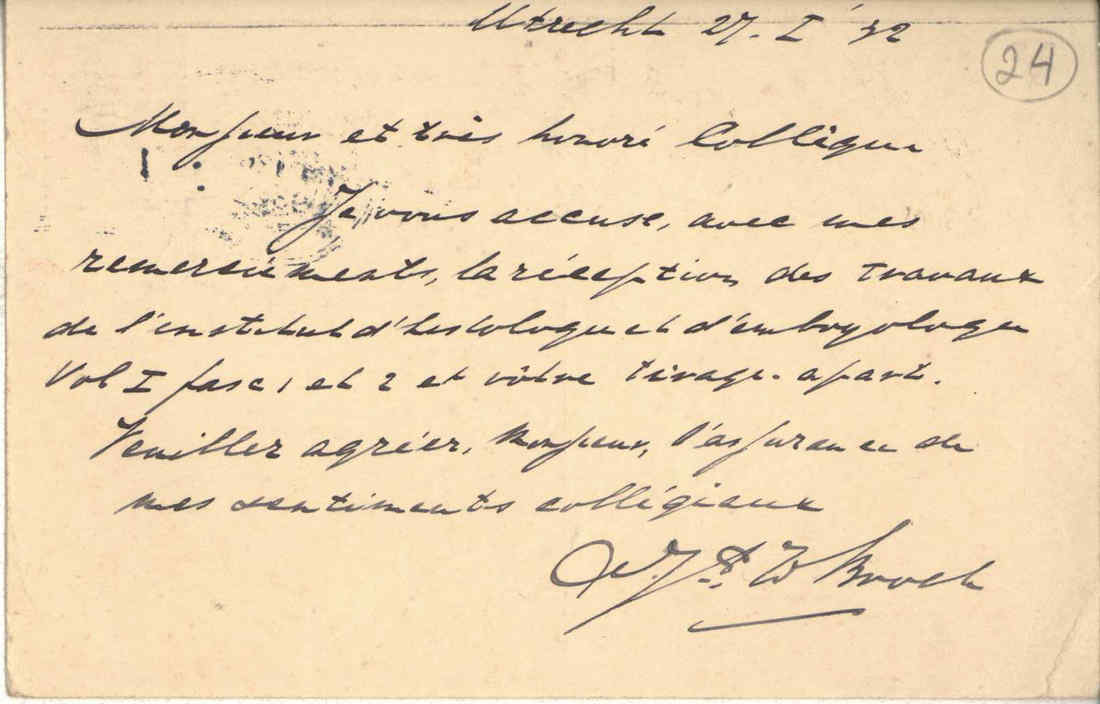 Utrecht 27. I '32
24
Monsieur et très honoré Collègue
Je vous accuse, avec mes
remerciements, la réception des travaux
de l'institut d'histologie et d'embryologie
Vol I fasc 1 et 2 et vôtre tirage-apart.
Veuillez agréer, Monsieur, l'assurance de
mes sentiments collégiaux
Broek